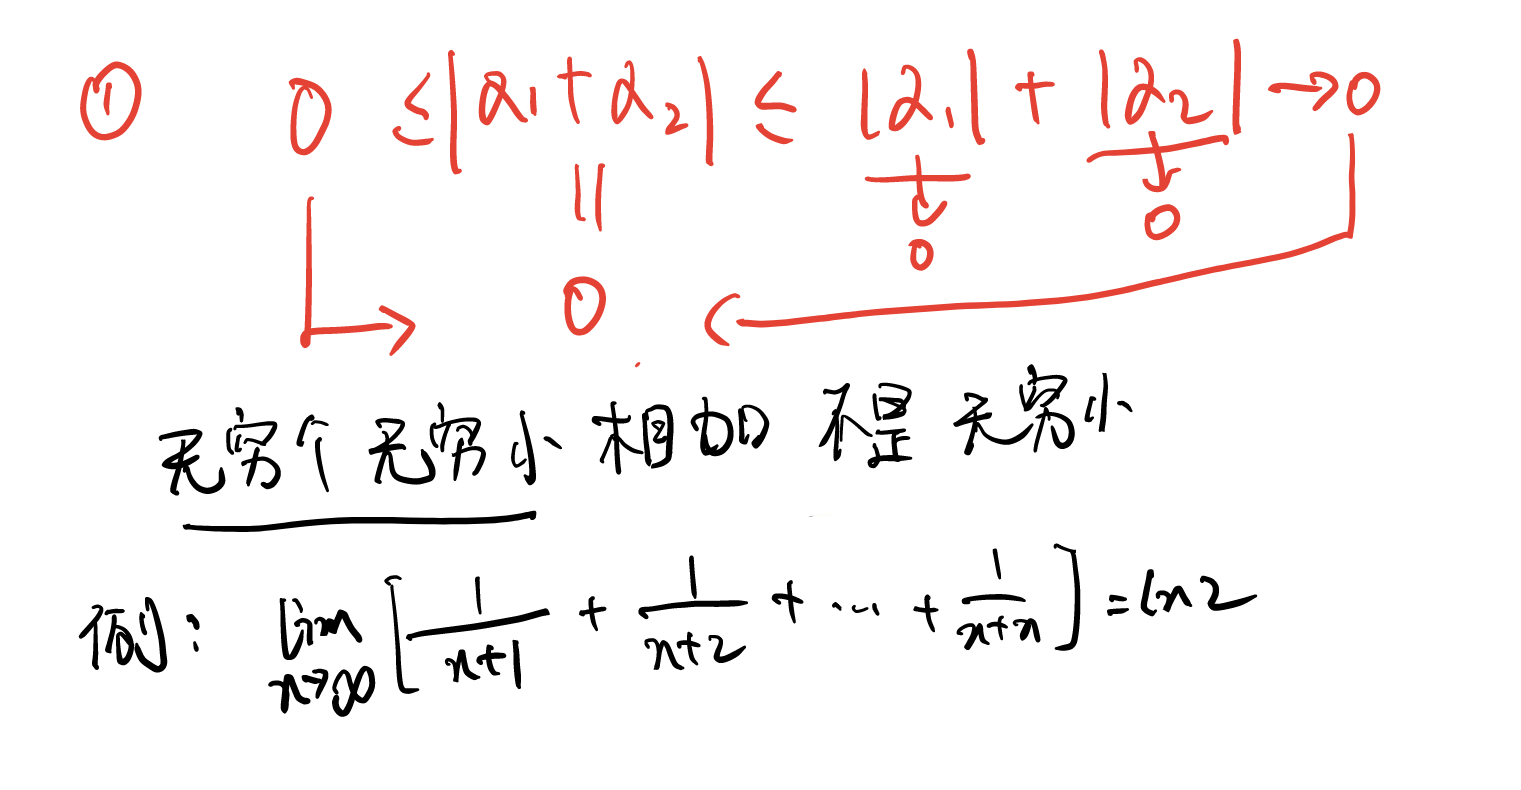 ① 0 ≤ |α₁ + α₂| ≤ |α₁| + |α₂| → 0
|| ↓ ↓
0 0
0
无穷个无穷小相加 不是 无穷小
例: lim n→∞ [1/(n+1) + 1/(n+2) + ... + 1/(n+n)] = ln2